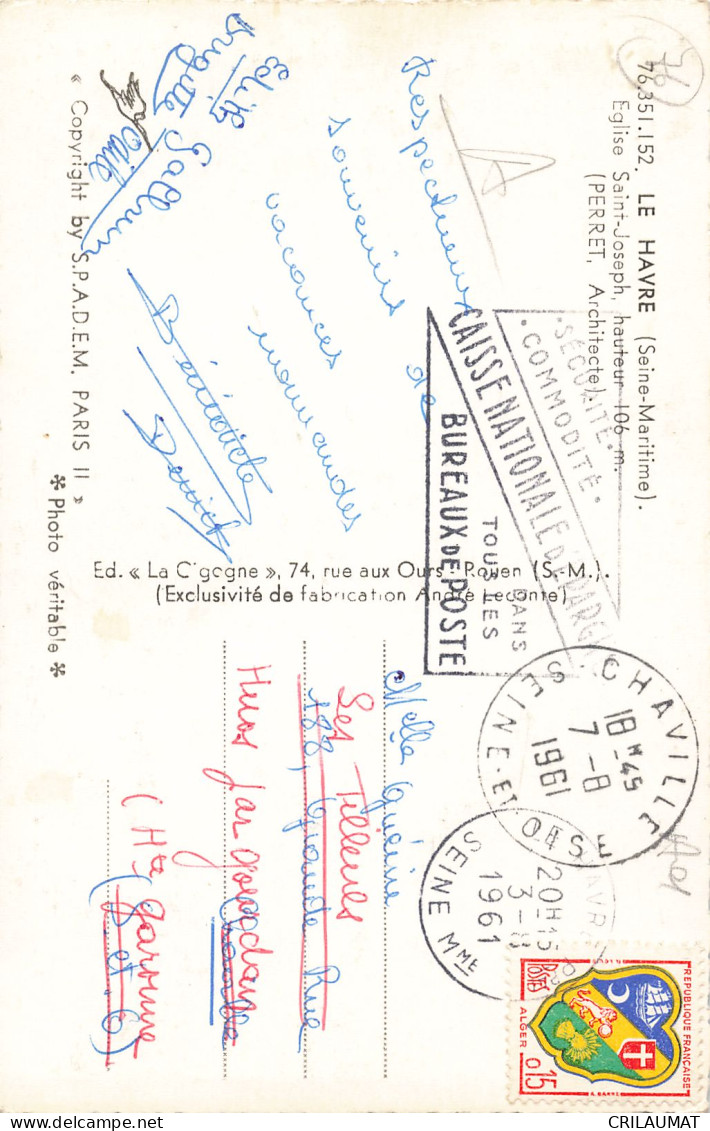 76.351.152. LE HAVRE (Seine-Maritime).
Eglise Saint-Joseph, hauteur 106 m.
(PERRET, Architecte).
76
Respectueux
souvenirs de
vacances
normandes
Edith
Brigitte
Odile
Bénédicte
« Copyright by S.P.A.D.E.M. PARIS II »
✻ Photo véritable ✻
Ed. « La Cigogne », 74, rue aux Ours - Rouen (S.-M.).
(Exclusivité de fabrication André Leconte)
·SÉCURITÉ·
·COMMODITÉ·
CAISSE NATIONALE D'ÉPARGNE
DANS
TOUS LES
BUREAUX DE POSTE
CHAVILLE
18H45
7-8
1961
SEINE-ET-OISE
20H15
3-8
1961
SEINE Mme
REPUBLIQUE FRANÇAISE
POSTES
ALGER
0,15
Melle Guérin
188, Grande Rue
Les Tilleuls
(S. et O)
(Hte Garonne
CRILAUMAT